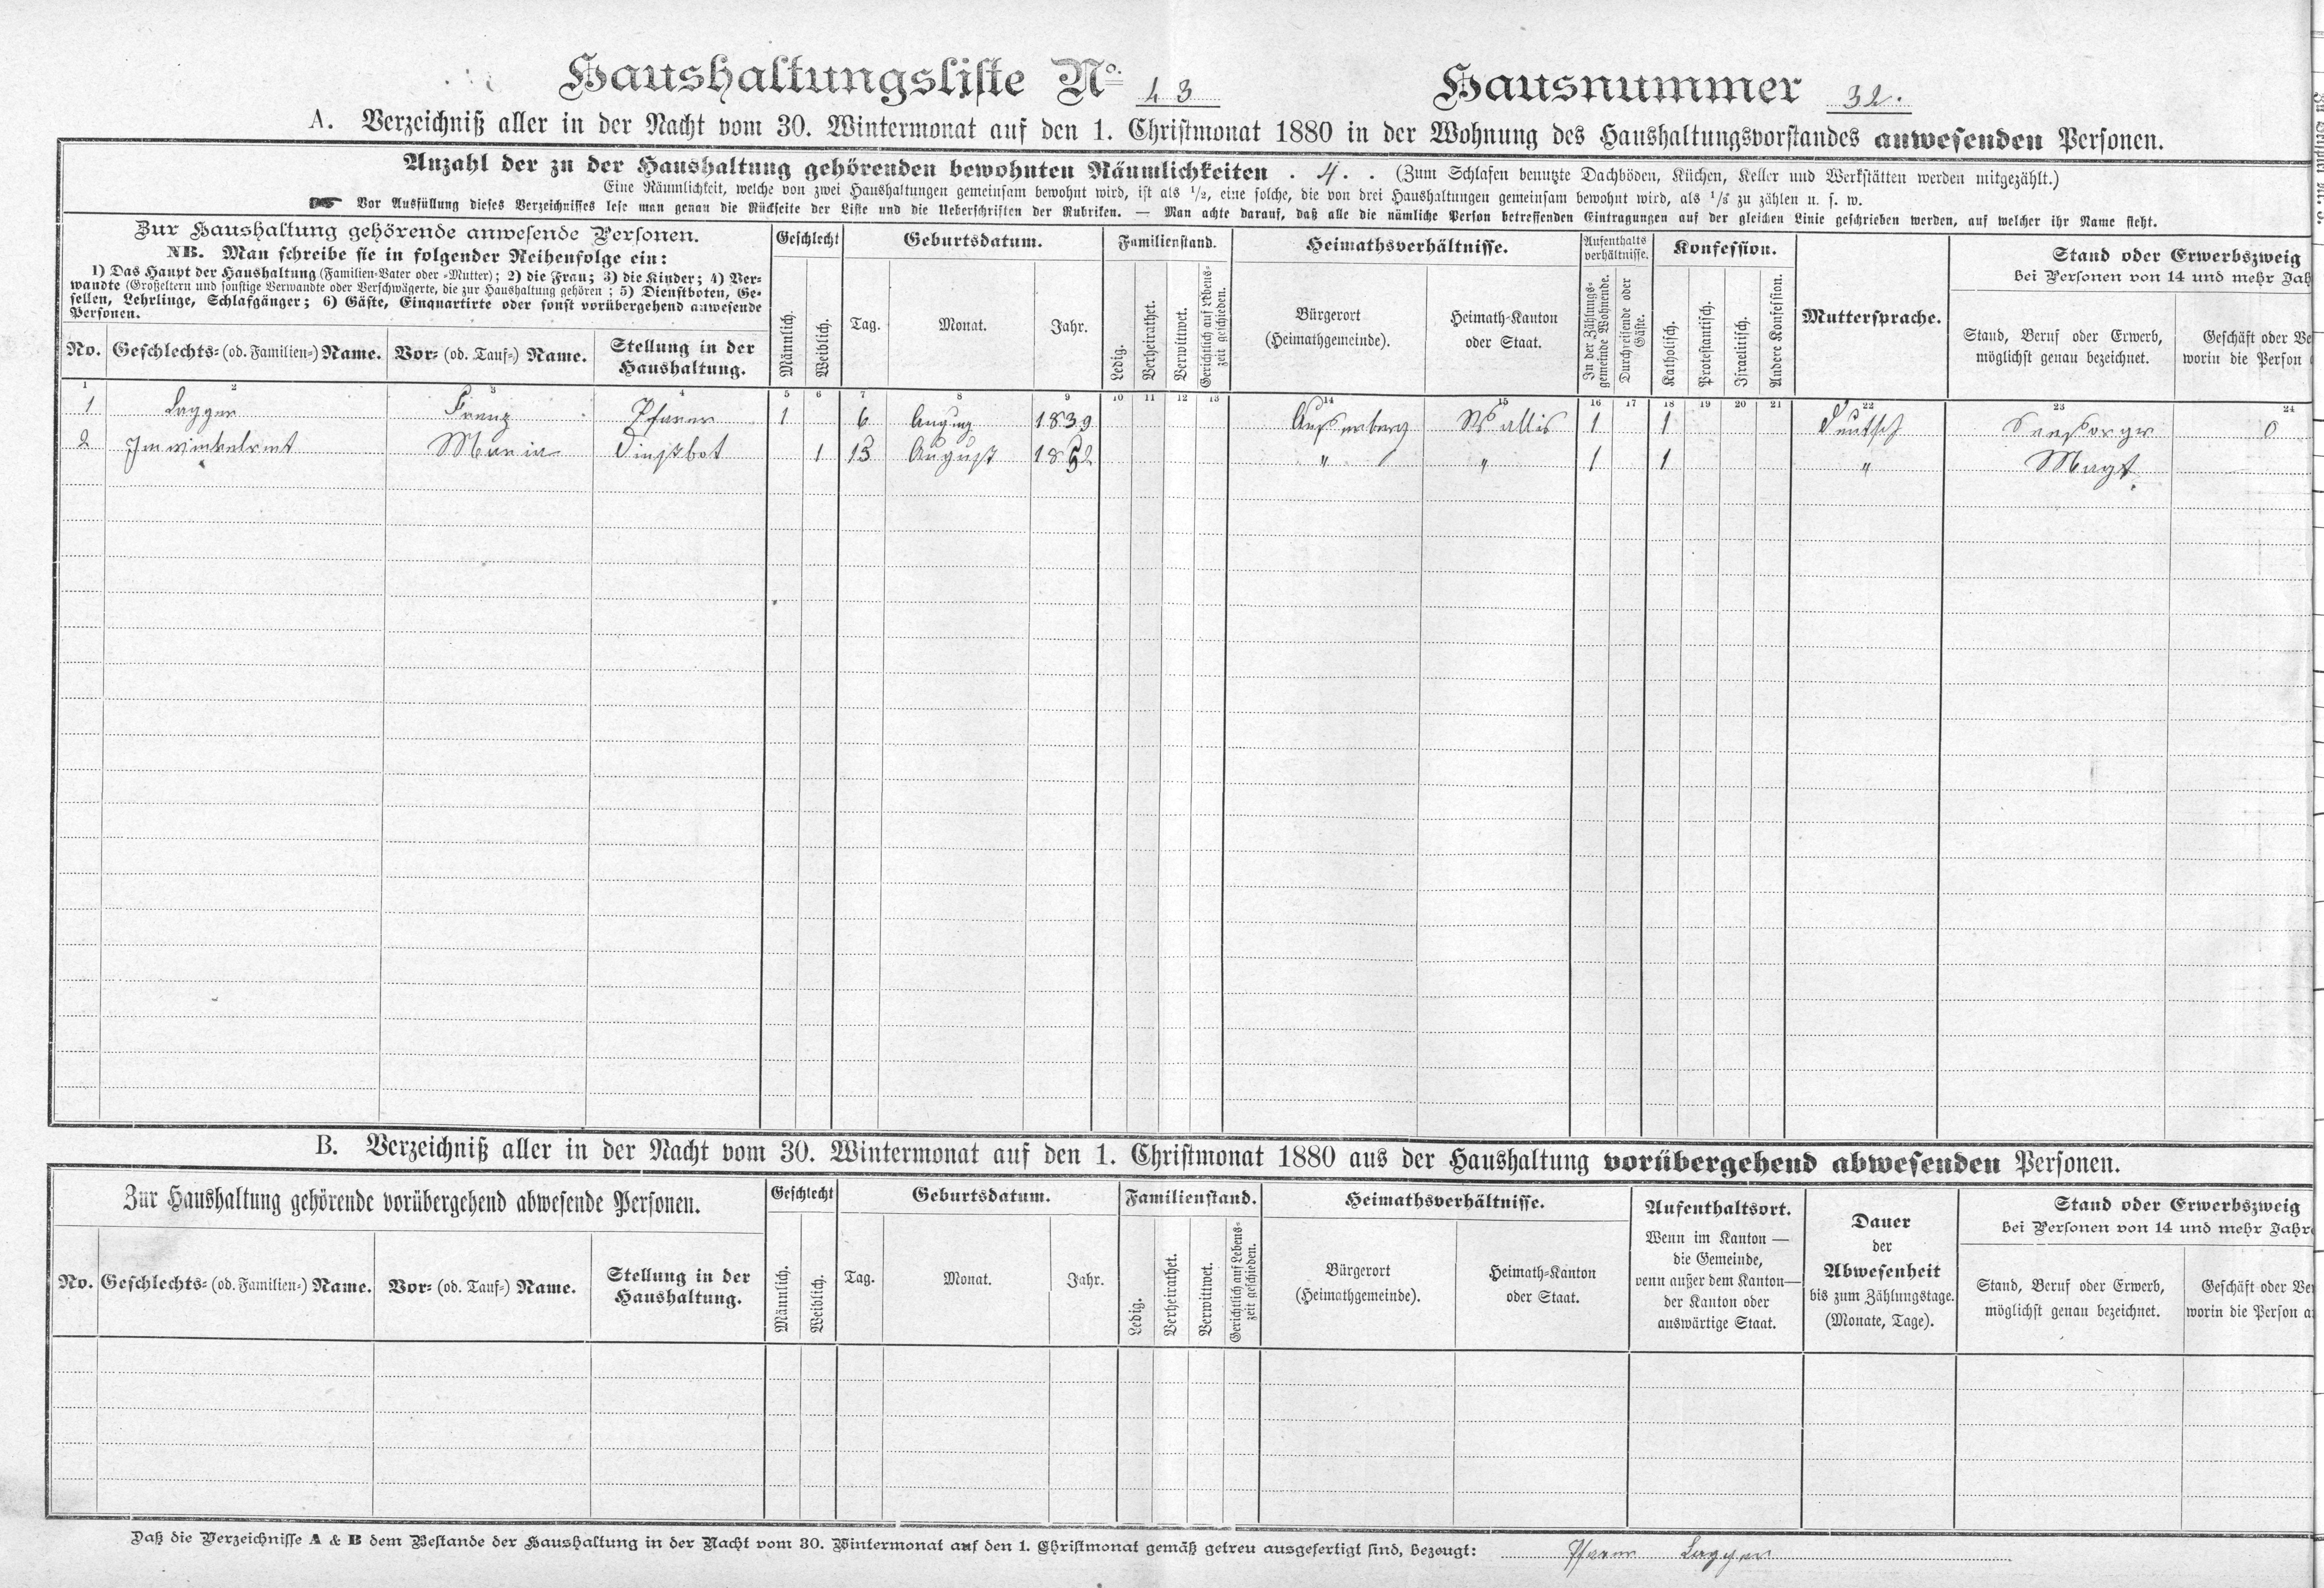 Haushaltungsliste No. 43 Hausnummer 32.
A. Verzeichniß aller in der Nacht vom 30. Wintermonat auf den 1. Christmonat 1880 in der Wohnung des Haushaltungsvorstandes anwesenden Personen.
Anzahl der zu der Haushaltung gehörenden bewohnten Räumlichkeiten . 4. . (Zum Schlafen benutzte Dachböden, Küchen, Keller und Werkstätten werden mitgezählt.)
Eine Räumlichkeit, welche von zwei Haushaltungen gemeinsam bewohnt wird, ist als 1/2, eine solche, die von drei Haushaltungen gemeinsam bewohnt wird, als 1/3 zu zählen u. s. w.
☛ Vor Ausfüllung dieses Verzeichnisses lese man genau die Rückseite der Liste und die Ueberschriften der Rubriken. — Man achte darauf, daß alle die nämliche Person betreffenden Eintragungen auf der gleichen Linie geschrieben werden, auf welcher ihr Name steht.
Zur Haushaltung gehörende anwesende Personen.
NB. Man schreibe sie in folgender Reihenfolge ein:
1) Das Haupt der Haushaltung (Familien-Vater oder -Mutter); 2) die Frau; 3) die Kinder; 4) Ver-
wandte (Großeltern und sonstige Verwandte oder Verschwägerte, die zur Haushaltung gehören; 5) Dienstboten, Ge-
sellen, Lehrlinge, Schlafgänger; 6) Gäste, Einquartirte oder sonst vorübergehend anwesende
Personen.
No. Geschlechts- (od. Familien-) Name. Vor- (od. Tauf-) Name. Stellung in der
Haushaltung.
Geschlecht
Männlich. Weiblich.
Geburtsdatum.
Tag. Monat. Jahr.
Familienstand.
Ledig. Verheirathet. Verwittwet. Gerichtlich auf Lebens-
zeit geschieden.
Heimathsverhältnisse.
Bürgerort
(Heimathgemeinde).
Heimath-Kanton
oder Staat.
Aufenthalts
verhältnisse.
In der Zählungs-
gemeinde Wohnende.
Durchreisende oder
Gäste.
Konfession.
Katholisch. Protestantisch. Israelitisch. Andere Konfession.
Muttersprache.
Stand oder Erwerbszweig
bei Personen von 14 und mehr Jah
Stand, Beruf oder Erwerb,
möglichst genau bezeichnet.
Geschäft oder Ve
worin die Person
1 2 3 4 5 6 7 8 9 10 11 12 13 14 15 16 17 18 19 20 21 22 23 24
1 Lagger Franz Pfarrer 1 6 August 1839 Außerberg Wallis 1 1 Deutsch Seelsorger 0
2 Imwinkelriet Maria Dinstbot 1 15 August 1852 " " 1 1 " Magt
B. Verzeichniß aller in der Nacht vom 30. Wintermonat auf den 1. Christmonat 1880 aus der Haushaltung vorübergehend abwesenden Personen.
Zur Haushaltung gehörende vorübergehend abwesende Personen.
No. Geschlechts- (od. Familien-) Name. Vor- (od. Tauf-) Name. Stellung in der
Haushaltung.
Geschlecht
Männlich. Weiblich.
Geburtsdatum.
Tag. Monat. Jahr.
Familienstand.
Ledig. Verheirathet. Verwittwet. Gerichtlich auf Lebens-
zeit geschieden.
Heimathsverhältnisse.
Bürgerort
(Heimathgemeinde).
Heimath-Kanton
oder Staat.
Aufenthaltsort.
Wenn im Kanton —
die Gemeinde,
wenn außer dem Kanton—
der Kanton oder
auswärtige Staat.
Dauer
der
Abwesenheit
bis zum Zählungstage.
(Monate, Tage).
Stand oder Erwerbszweig
bei Personen von 14 und mehr Jahre
Stand, Beruf oder Erwerb,
möglichst genau bezeichnet.
Geschäft oder Ver
worin die Person a
Daß die Verzeichnisse A & B dem Bestande der Haushaltung in der Nacht vom 30. Wintermonat auf den 1. Christmonat gemäß getreu ausgefertigt sind, bezeugt: Pfarrer Lagger